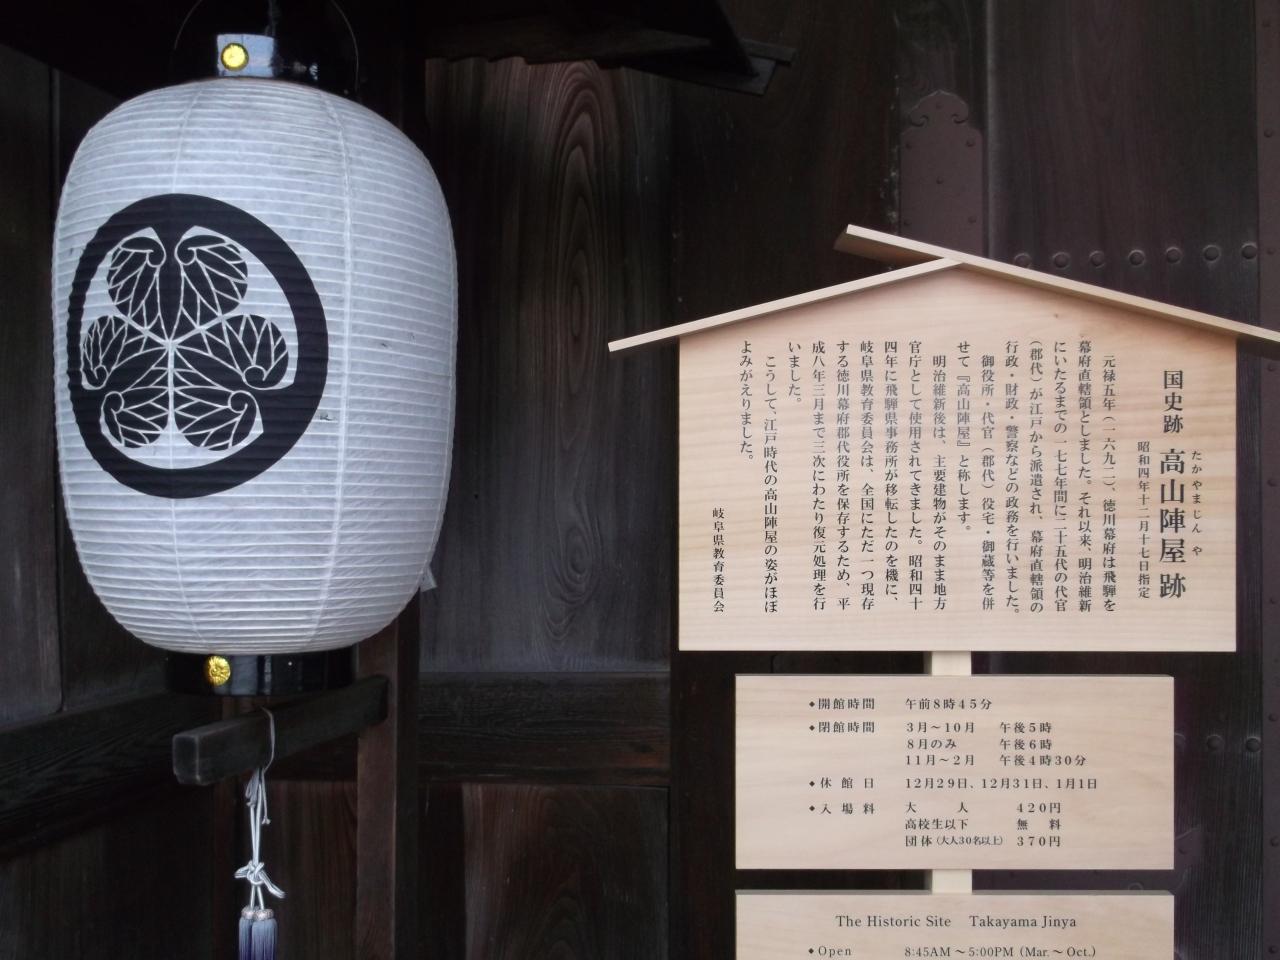 国史跡 高山陣屋跡
たかやまじんや
昭和四年十二月十七日指定
元禄五年(一六九二)、徳川幕府は飛騨を
幕府直轄領としました。それ以来、明治維新
にいたるまでの一七七年間に二十五代の代官
(郡代)が江戸から派遣され、幕府直轄領の
行政・財政・警察などの政務を行いました。
御役所・代官(郡代)役宅・御蔵等を併
せて『高山陣屋』と称します。
明治維新後は、主要建物がそのまま地方
官庁として使用されてきました。昭和四十
四年に飛騨県事務所が移転したのを機に、
岐阜県教育委員会は、全国にただ一つ現存
する徳川幕府郡代役所を保存するため、平
成八年三月まで三次にわたり復元処理を行
いました。
こうして、江戸時代の高山陣屋の姿がほぼ
よみがえりました。
岐阜県教育委員会
◆開館時間 午前8時45分
◆閉館時間 3月〜10月 午後5時
8月のみ 午後6時
11月〜2月 午後4時30分
◆休館日 12月29日、12月31日、1月1日
◆入場料 大人 420円
高校生以下 無料
団体(大人30名以上) 370円
The Historic Site Takayama Jinya
◆Open 8:45AM〜5:00PM (Mar.〜Oct.)